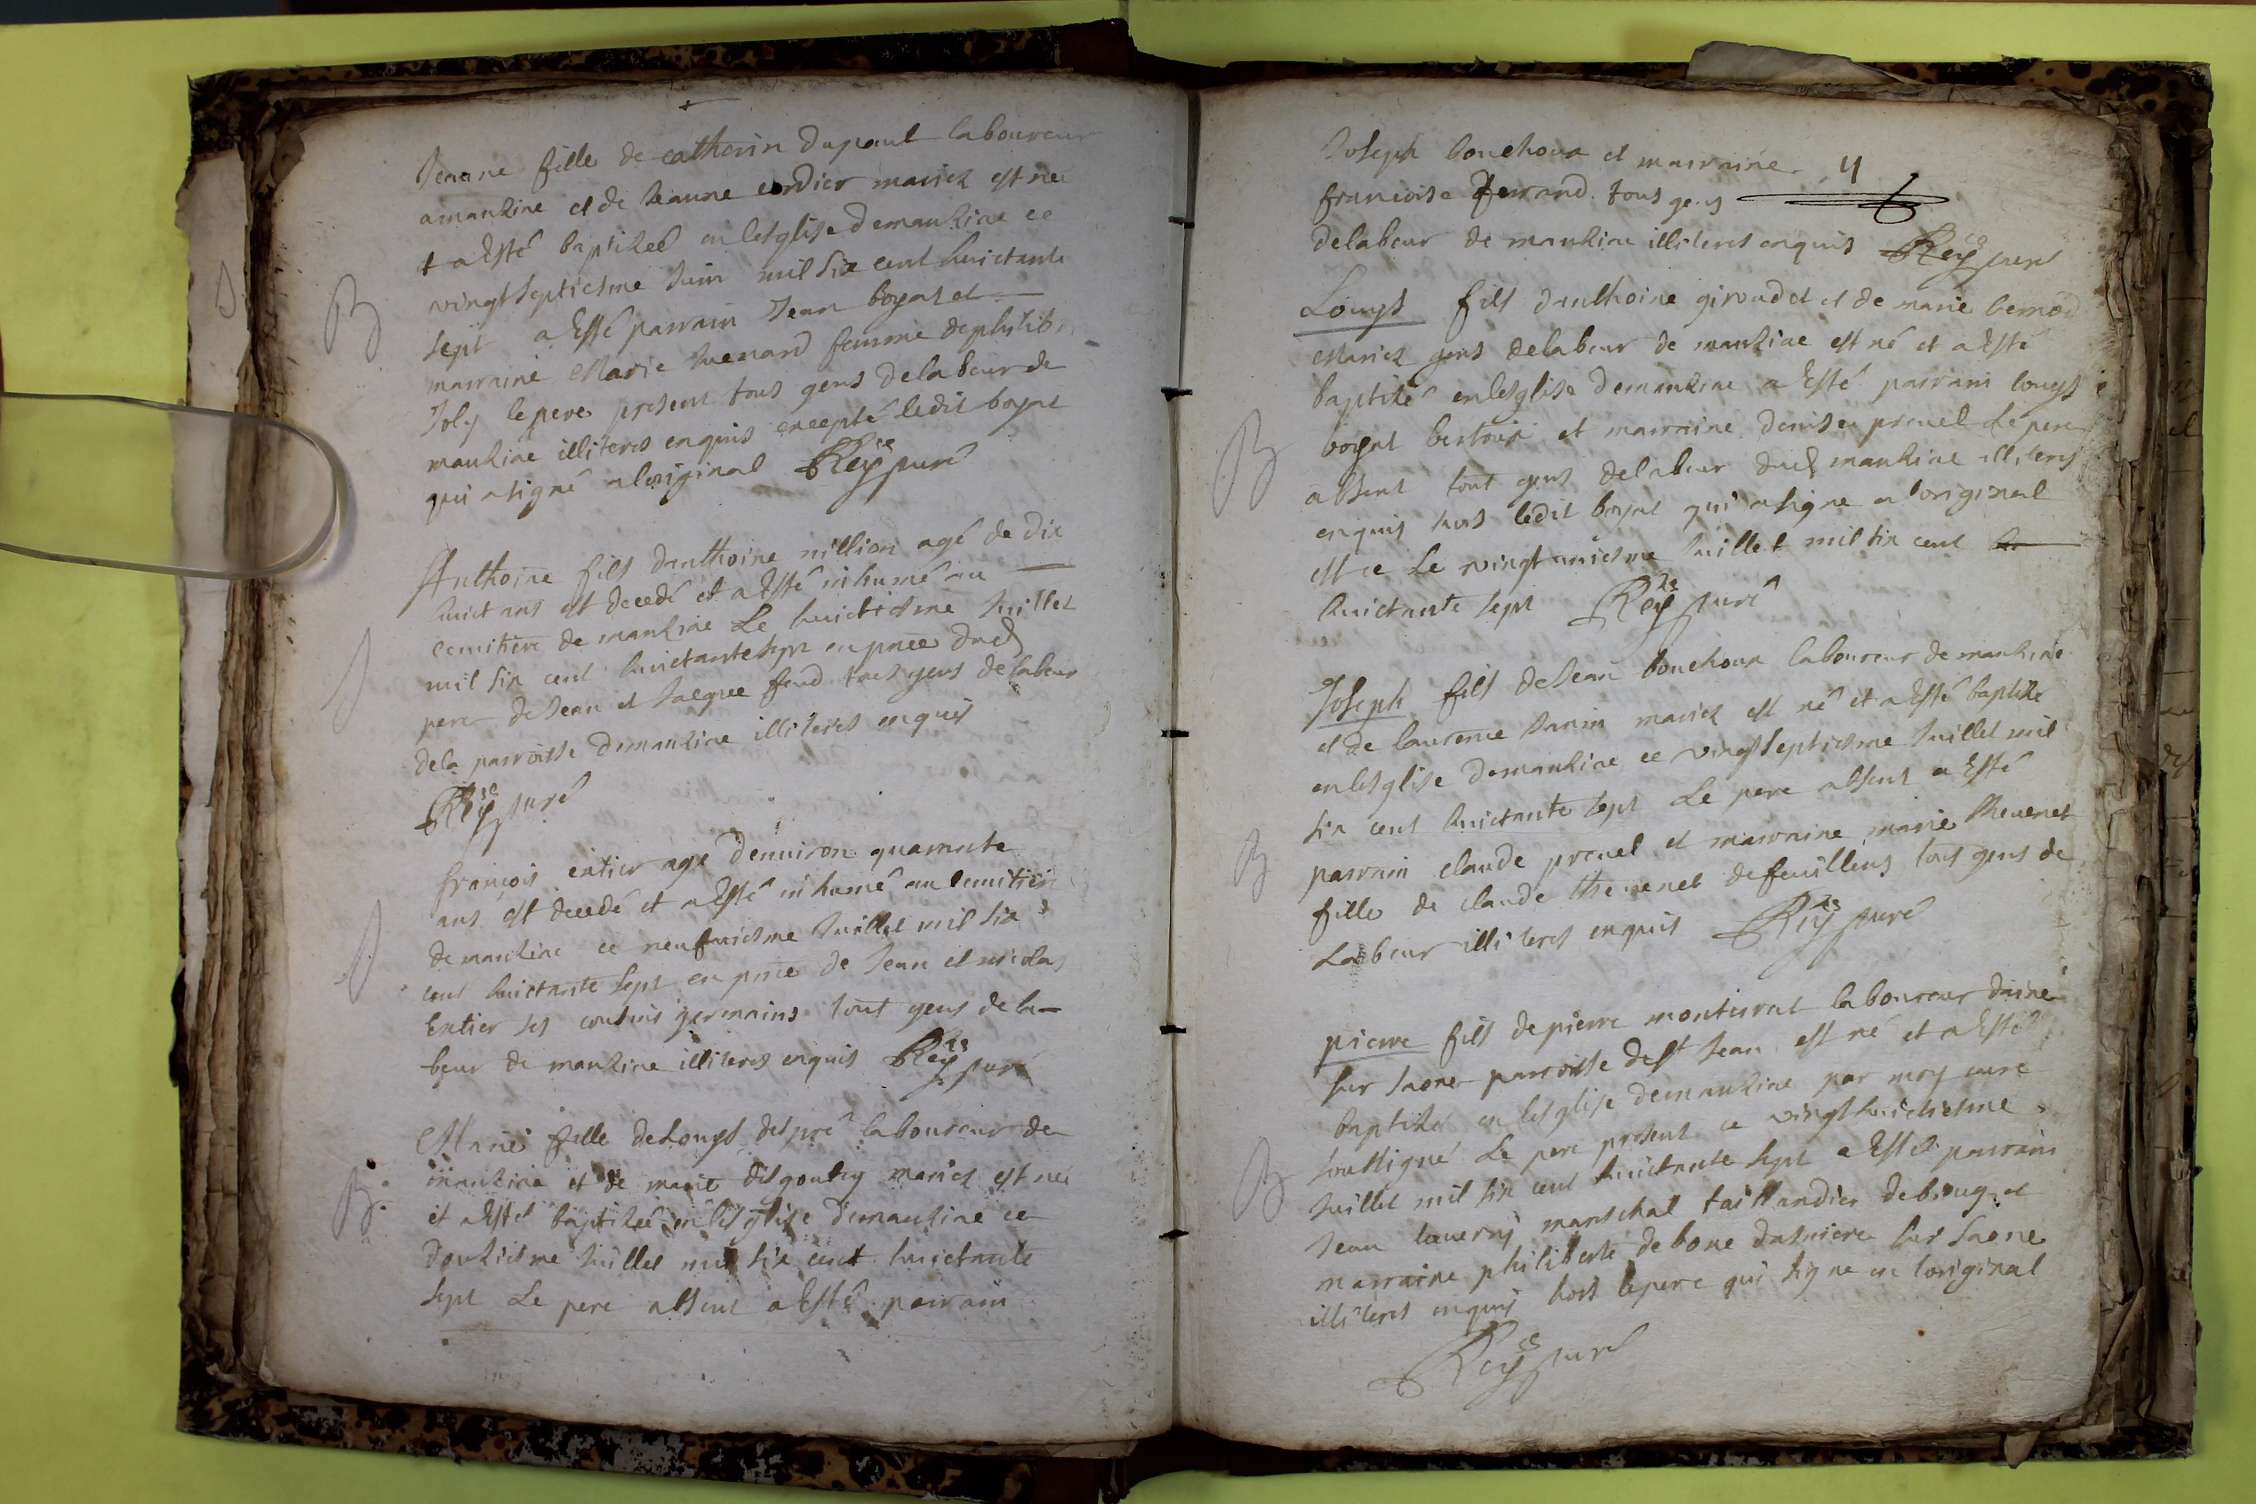 Jeanne fille de catherin Dupaul laboureur
amankine et de Jeanne cordier mariez est nee
+ a Esté baptizeé en lesglise demankine ce
vingtseptiesme Juin mil six cent huictante
B
sept a Esté parrain Jean boyat et
marraine Marie Juenard femme dephilib
Joly le pere present tous gens delabeur de
mankine illiteres enquis excepté ledit boyat
qui a signé a loriginal Rey curé
Anthoine fils danthoine million agé de dix
huict ans est decedé et a Esté inhumé au
cemitiere de mankine Le huictiesme Juillet
mil six cent huictantesept en pnce dud
pere de Jean et Jacque feud tous gens delabeur
dela parroisse demankine illiteres enquis
Rey curé
françois entier agé denuiron quarante
ans est decedé et a Esté inhumé au cemitiere
de mankine ce neufuiesme Juillet mil six
cent huictante sept en pnce de Jean et nicolas
Entier ses cousins germains tout gens de la-
beur de mankine illiteres enquis Rey curé
Marie fille deLouys despré laboureur de
mankine et de marie desgoutey mariez est nee
B
et a Esté baptizeé en lesglise demankine ce
douziesme Juillet mil six cent huictante
sept Le pere absent a Esté parrain
Joseph bouchoux et marraine 4
francoise ferrand tous gens
delabeur de mankine illiteres enquis Rey curé
Louys fils danthoine giroudet et de marie bernod
Mariez gens delabeur de mankine est né et a Esté
baptizé en lesglise demankine a Esté parrain louys
B
boyat et marraine denise preuel Le pere
absent tout gens delabeur dud mankine illiteres
enquis hors ledit boyat qui a signe a loriginal
est ce Le vingtuniesme Juillet mil six cent
huictante sept Rey curé
Joseph fils deJean bouchoux laboureur de mankine
et de laurence Janin mariez est né et a Esté baptize
en lesglise demankine ce vingtseptiesme Juillet mil
six cent huictante sept Le pere absent a Esté
B
parrain claude preuel et marraine marie theuenet
fille de claude theuenet defeuillens tous gens de
Labeur illiteres enquis Rey curé
pierre fils depierre monterrat laboureur
sur saone parroisse dest Jean est né et a Esté
baptizé en lesglise demankine par moy curé
soussigné Le pere present ce vingthuictiesme
B
Juillet mil six cent huictante sept a Esté parrain
Jean tauerny mareschal taillandier debourg et
marraine philiberte debone dasniere sur saone
illiteres enquis hors lepere qui signe en loriginal
Rey curé